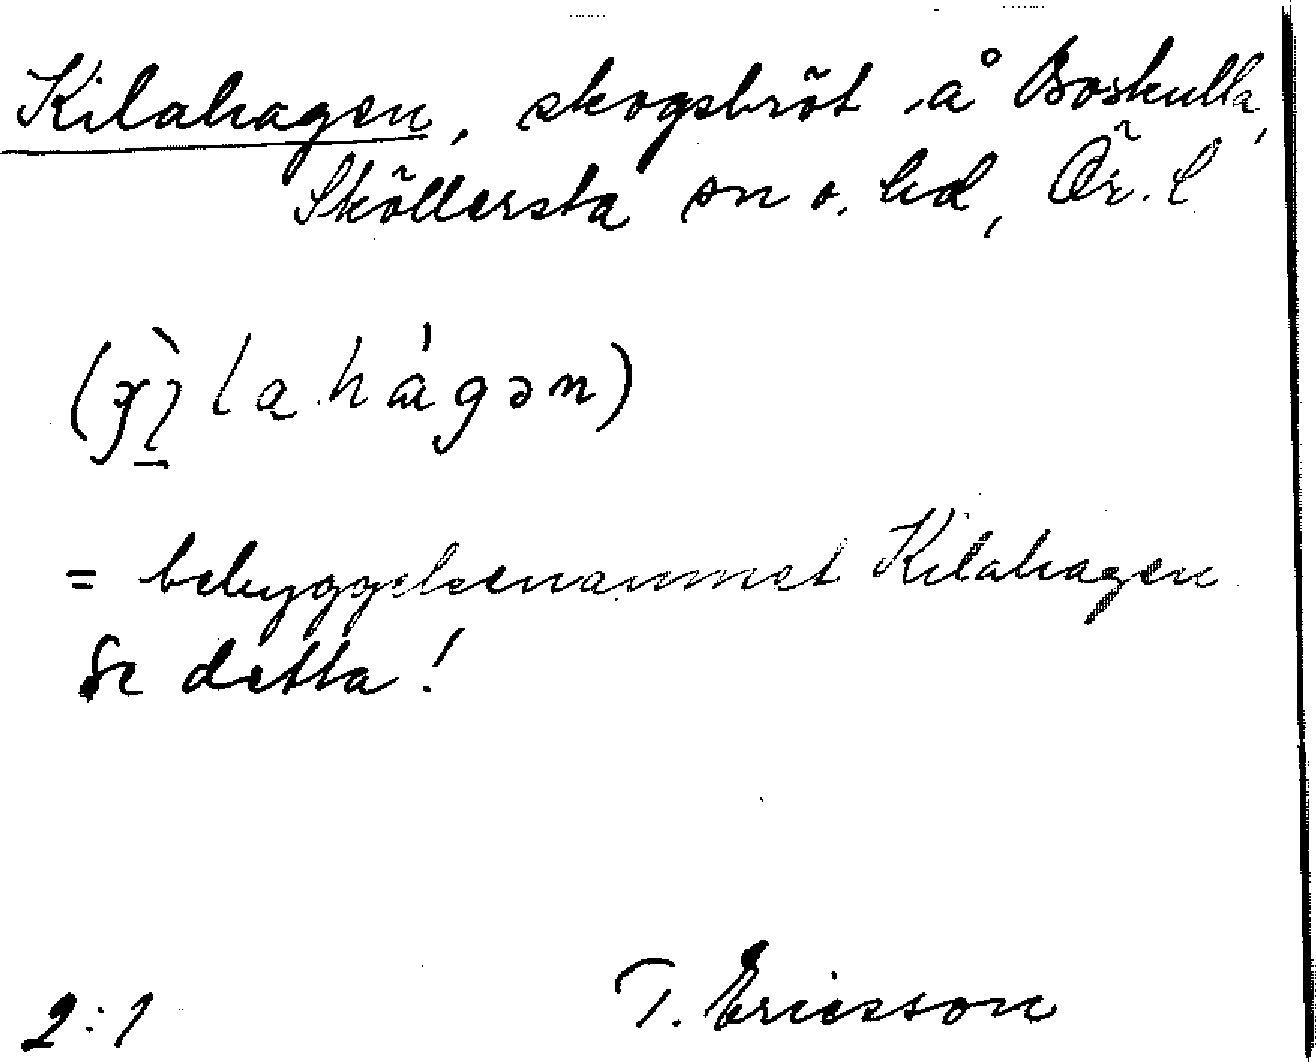 Kilahagen, skogsbröt å Boskulla,
Sköllersta sn o. hd, Ör. l
= bebyggelsenamnet Kilahagen
Se detta!
T. Ericsson
2:1